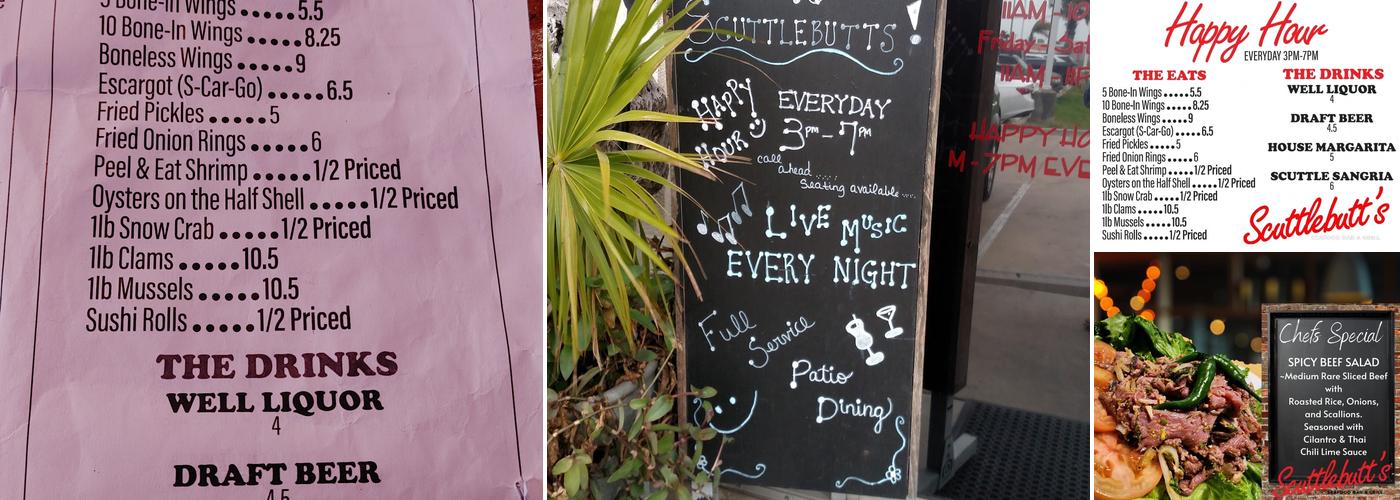 5 Bone-In Wings.....5.5
10 Bone-In Wings.....8.25
Boneless Wings.....9
Escargot (S-Car-Go).....6.5
Fried Pickles.....5
Fried Onion Rings.....6
Peel & Eat Shrimp.....1/2 Priced
Oysters on the Half Shell.....1/2 Priced
1lb Snow Crab.....1/2 Priced
1lb Clams.....10.5
1lb Mussels.....10.5
Sushi Rolls.....1/2 Priced
THE DRINKS
WELL LIQUOR
4
DRAFT BEER
4.5
SCUTTLEBUTTS!
HAPPY HOUR
EVERYDAY
3pm-7pm
call
ahead.....
Seating available....
LIVE MUSIC
EVERY NIGHT
Full
Service
Patio
Dining
11AM - 10
Friday - Sat
11AM - 11P
HAPPY HO
M - 7PM EVE
Happy Hour
EVERYDAY 3PM-7PM
THE EATS
5 Bone-In Wings.....5.5
10 Bone-In Wings.....8.25
Boneless Wings.....9
Escargot (S-Car-Go).....6.5
Fried Pickles.....5
Fried Onion Rings.....6
Peel & Eat Shrimp.....1/2 Priced
Oysters on the Half Shell.....1/2 Priced
1lb Snow Crab.....1/2 Priced
1lb Clams.....10.5
1lb Mussels.....10.5
Sushi Rolls.....1/2 Priced
THE DRINKS
WELL LIQUOR
4
DRAFT BEER
4.5
HOUSE MARGARITA
5
SCUTTLE SANGRIA
6
Scuttlebutt's
SEAFOOD BAR & GRILL
Chefs Special
SPICY BEEF SALAD
~Medium Rare Sliced Beef
with
Roasted Rice, Onions,
and Scallions.
Seasoned with
Cilantro & Thai
Chili Lime Sauce
Scuttlebutt's
SEAFOOD BAR & GRILL